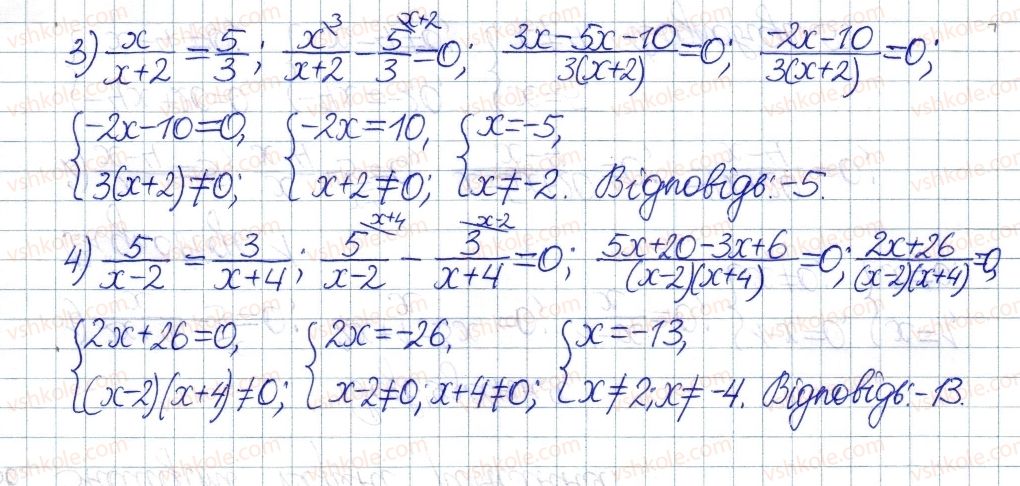 3) x/(x+2) = 5/3; x^(3/(x+2) - 5^(x+2/3 = 0; (3x-5x-10)/(3(x+2)) = 0; (-2x-10)/(3(x+2)) = 0;
{-2x-10=0, {-2x=10, {x=-5,
3(x+2)≠0; x+2≠0; x≠-2. Відповідь: -5.
4) 5/(x-2) = 3/(x+4); 5^(x+4/(x-2) - 3^(x-2/(x+4) = 0; (5x+20-3x+6)/((x-2)(x+4)) = 0; (2x+26)/((x-2)(x+4)) = 0,
{2x+26=0, {2x=-26, {x=-13,
(x-2)(x+4)≠0; x-2≠0; x+4≠0; x≠2; x≠-4. Відповідь: -13.
vshkole.com